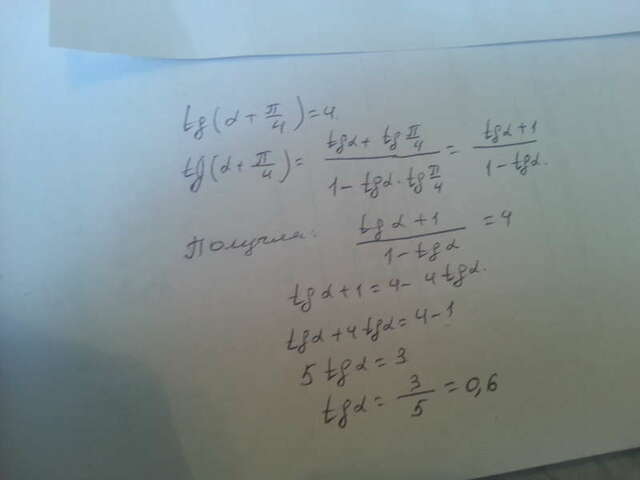 tg(α + π/4) = 4.
tg(α + π/4) = (tgα + tg π/4)/(1 - tgα · tg π/4) = (tgα + 1)/(1 - tgα).
Получили: (tgα + 1)/(1 - tgα) = 4
tgα + 1 = 4 - 4tgα.
tgα + 4tgα = 4 - 1
5tgα = 3
tgα = 3/5 = 0,6